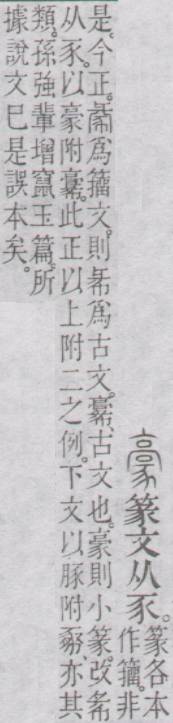 豪篆文从豕。篆各本
作籀。非
是。今正。爲籀文。則㣇爲古文。𩫕、古文也。豪則小篆。改㣇
从豕。以豪附𩫕。此正以上附二之例。下文以豚附亦其
類。孫強輩增竄玉篇。所
據說文巳是誤本矣。